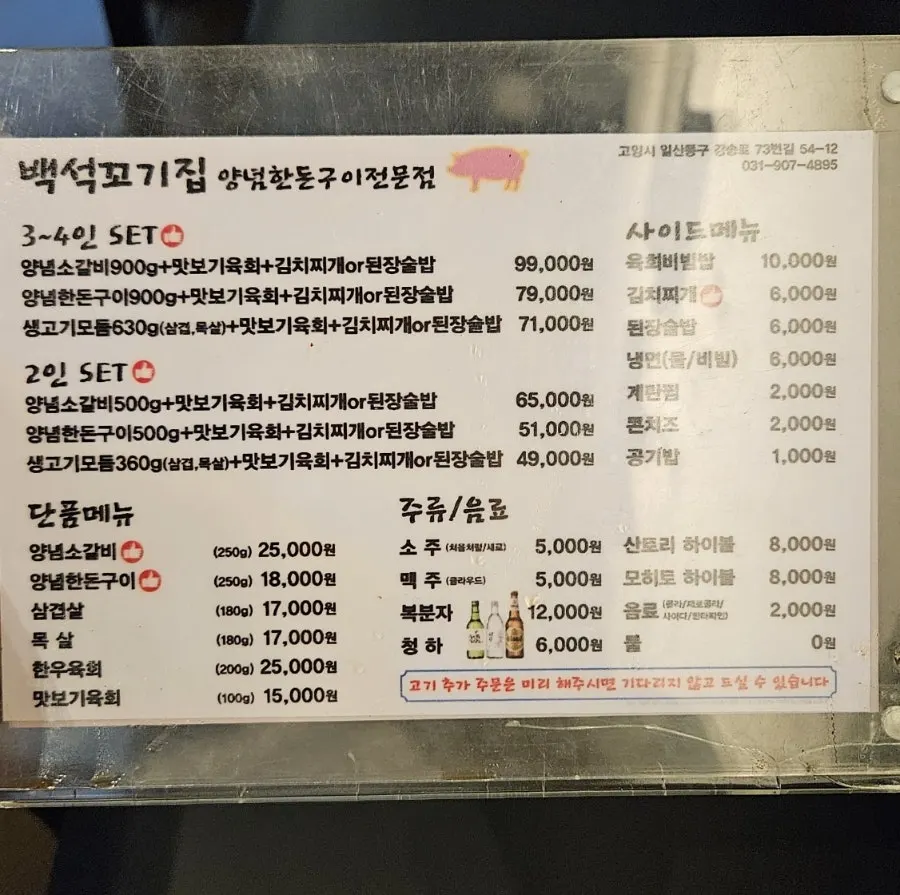 백석꼬기집 양념한돈구이전문점
고양시 일산동구 강송로 73번길 54-12
031-907-4895
3~4인 SET
양념소갈비900g+맛보기육회+김치찌개or된장술밥 99,000원
양념한돈구이900g+맛보기육회+김치찌개or된장술밥 79,000원
생고기모듬630g(삼겹,목살)+맛보기육회+김치찌개or된장술밥 71,000원
2인 SET
양념소갈비500g+맛보기육회+김치찌개or된장술밥 65,000원
양념한돈구이500g+맛보기육회+김치찌개or된장술밥 51,000원
생고기모듬360g(삼겹,목살)+맛보기육회+김치찌개or된장술밥 49,000원
사이드메뉴
육회비빔밥 10,000원
김치찌개 6,000원
된장술밥 6,000원
냉면(물/비빔) 6,000원
계란찜 2,000원
콘치즈 2,000원
공기밥 1,000원
단품메뉴
양념소갈비 (250g) 25,000원
양념한돈구이 (250g) 18,000원
삼겹살 (180g) 17,000원
목 살 (180g) 17,000원
한우육회 (200g) 25,000원
맛보기육회 (100g) 15,000원
주류/음료
소 주 (처음처럼/새로) 5,000원
맥 주 (클라우드) 5,000원
복분자 12,000원
청 하 6,000원
산토리 하이볼 8,000원
모히토 하이볼 8,000원
음료 (콜라/제로콜라/
사이다/핫식스) 2,000원
물 0원
고기 추가 주문은 미리 해주시면 기다리지 않고 드실 수 있습니다